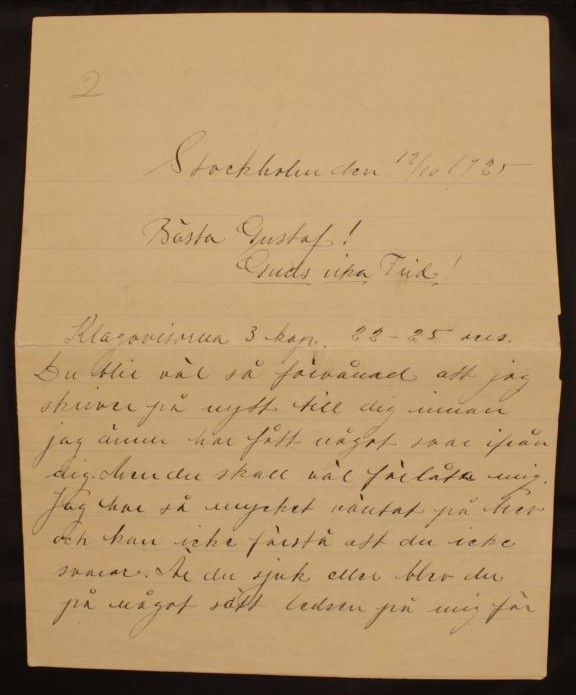 2
Stockholm den 12/10 1925
Bästa Gustaf!
Guds rika Frid!
Klagovisorna 3 kap. 22-25 vers.
Du blir väl så förvånad att jag
skriver på nytt till dig innan
jag ännu har fått något svar ifrån
dig. Men du skall väl förlåta mig.
Jag har så mycket väntat på brev
och kan icke förstå att du icke
svarar. Är du sjuk eller blev du
på något sätt ledsen på mig för